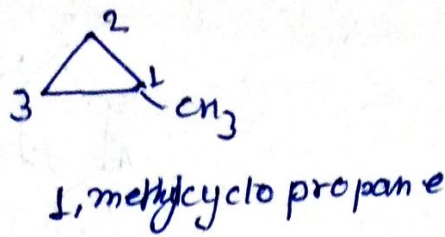 2
1
3
CH3
1, methylcyclo propane